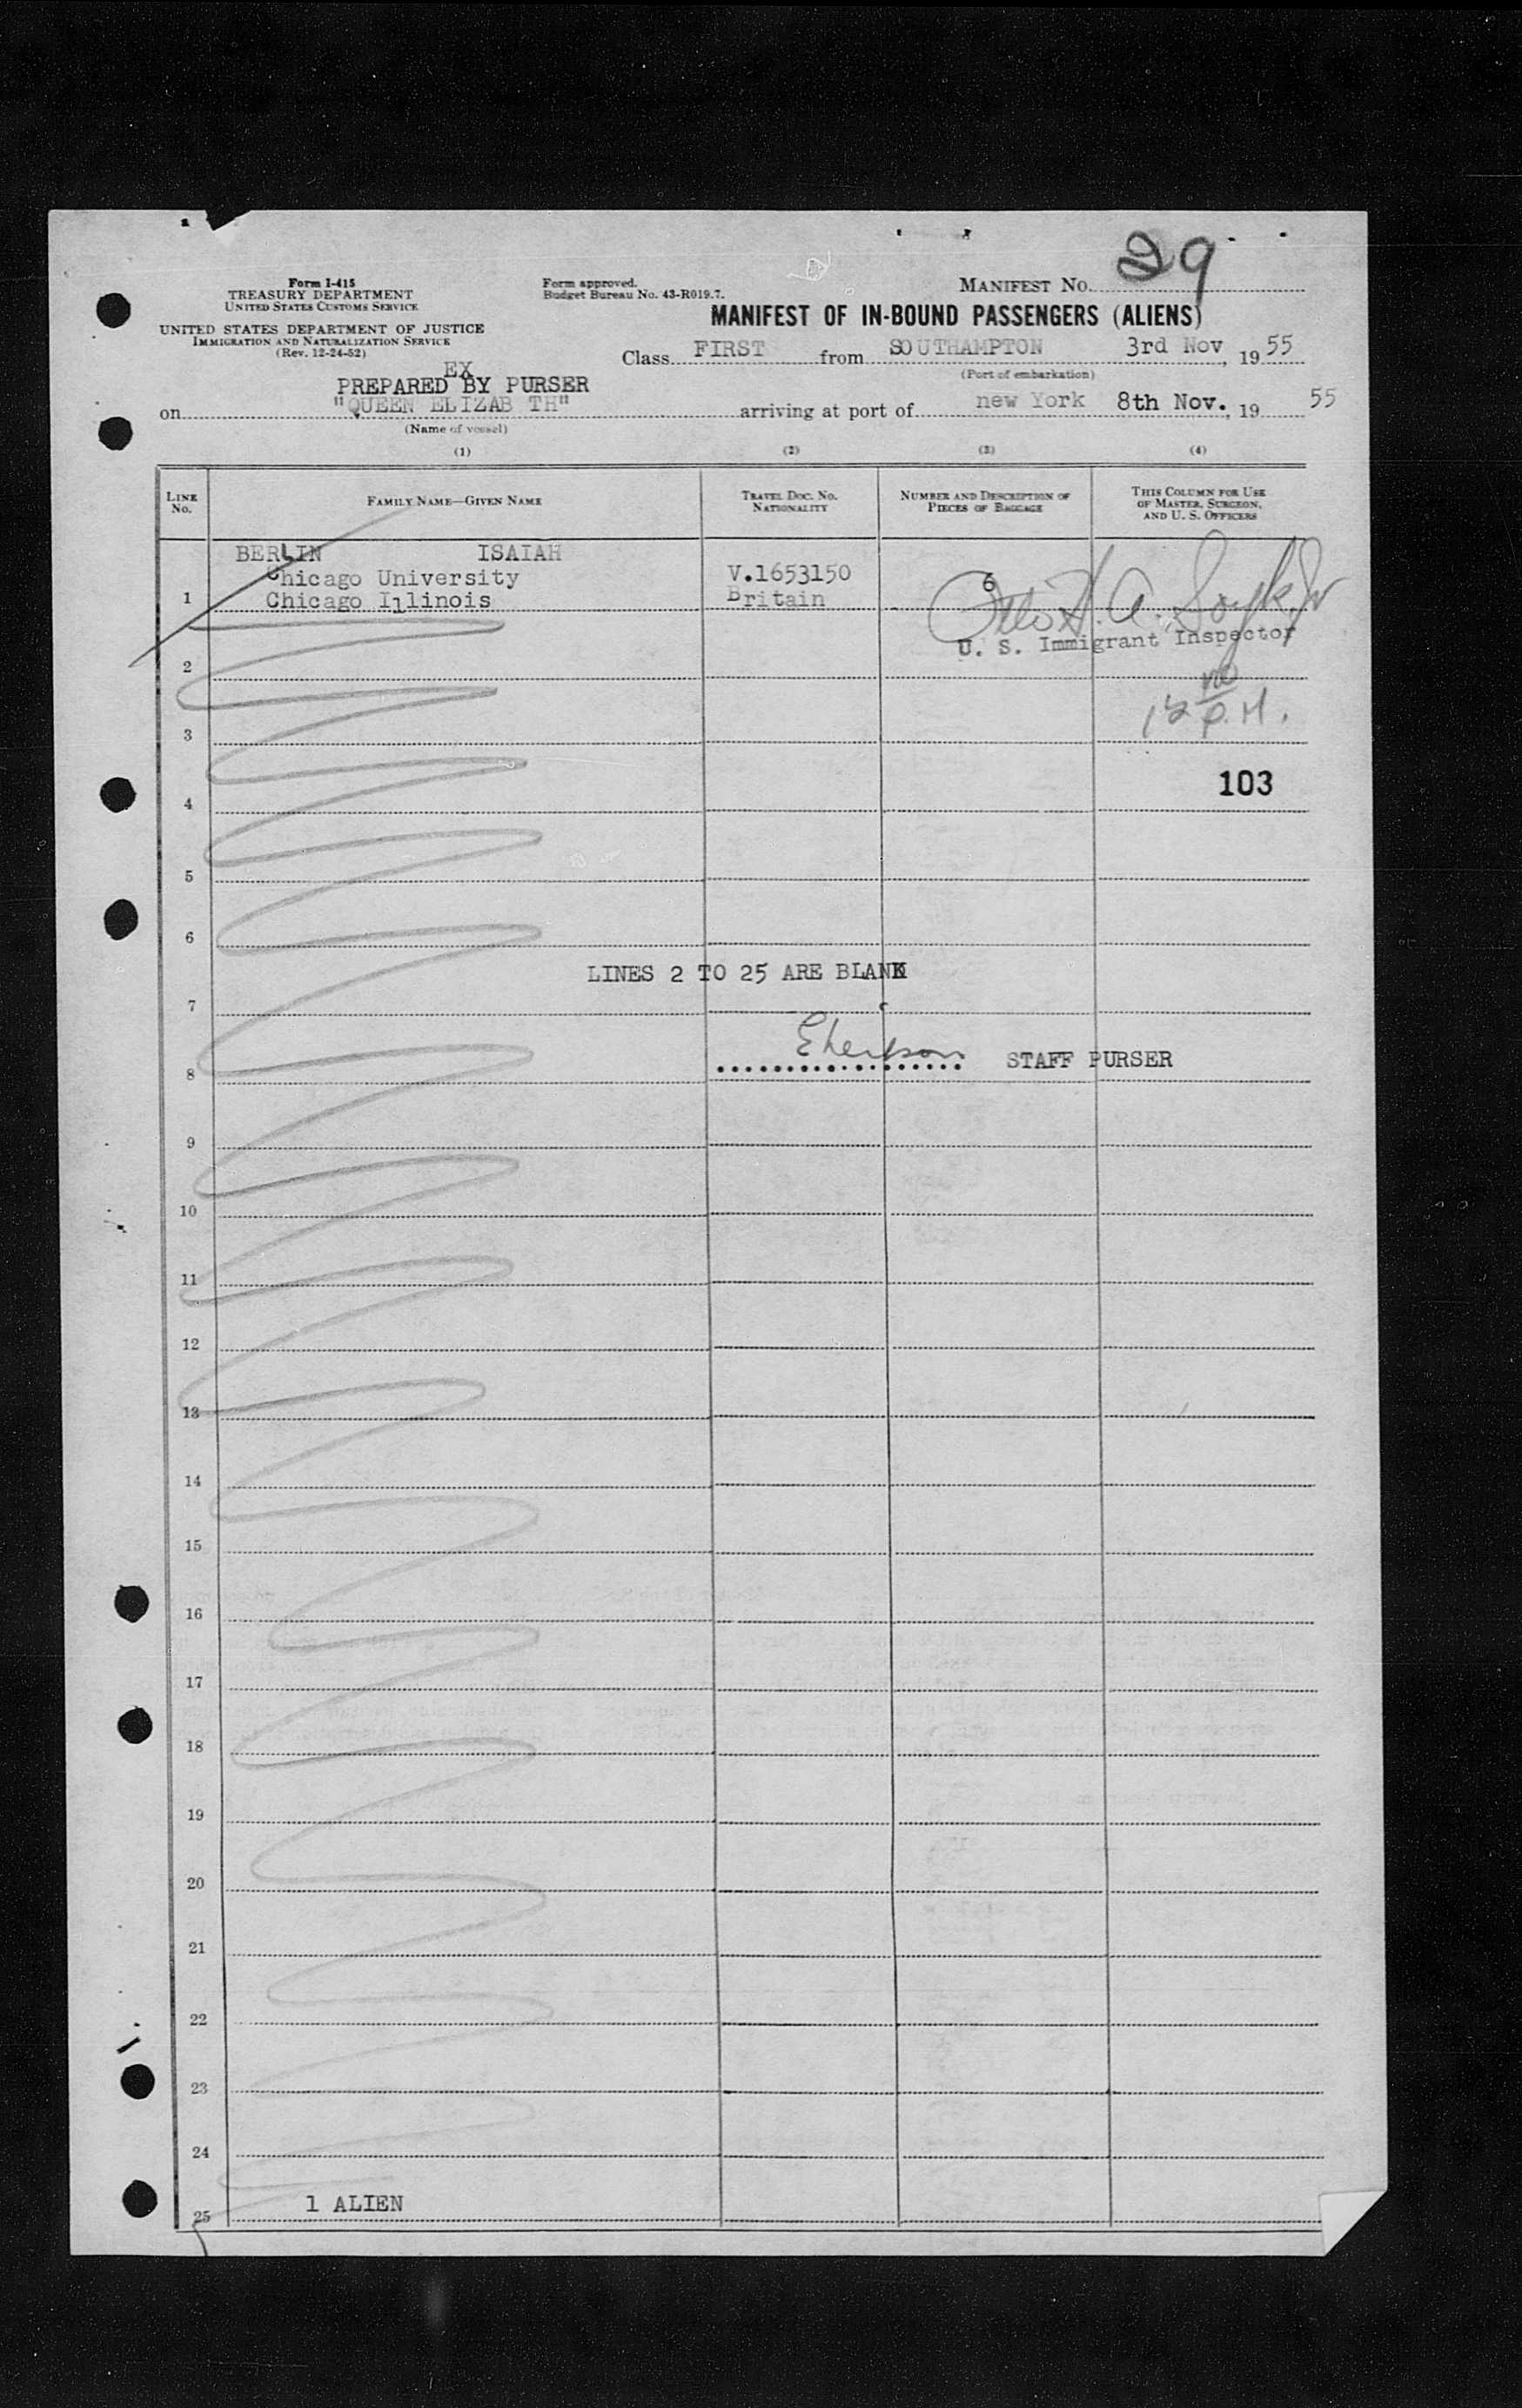 29
Form I-415
TREASURY DEPARTMENT
UNITED STATES CUSTOMS SERVICE
UNITED STATES DEPARTMENT OF JUSTICE
IMMIGRATION AND NATURALIZATION SERVICE
(Rev. 12-24-52)
Form approved.
Budget Bureau No. 43-R019.7.
MANIFEST NO.
MANIFEST OF IN-BOUND PASSENGERS (ALIENS)
Class FIRST from SOUTHAMPTON 3rd Nov, 19 55
(Port of embarkation)
EX
PREPARED BY PURSER
on "QUEEN ELIZAB TH" arriving at port of new York 8th Nov., 19 55
(Name of vessel)
(1) (2) (3) (4)
LINE NO.
FAMILY NAME—GIVEN NAME
TRAVEL DOC. NO.
NATIONALITY
NUMBER AND DESCRIPTION OF
PIECES OF BAGGAGE
THIS COLUMN FOR USE
OF MASTER, SURGEON,
AND U. S. OFFICERS
BERLIN ISAIAH
Chicago University V.1653150 6
1 Chicago Illinois Britain
U. S. Immigrant Inspector
2
12 P.M.
3
103
4
5
6
LINES 2 TO 25 ARE BLANK
7
STAFF PURSER
8
9
10
11
12
13
14
15
16
17
18
19
20
21
22
23
24
1 ALIEN
25